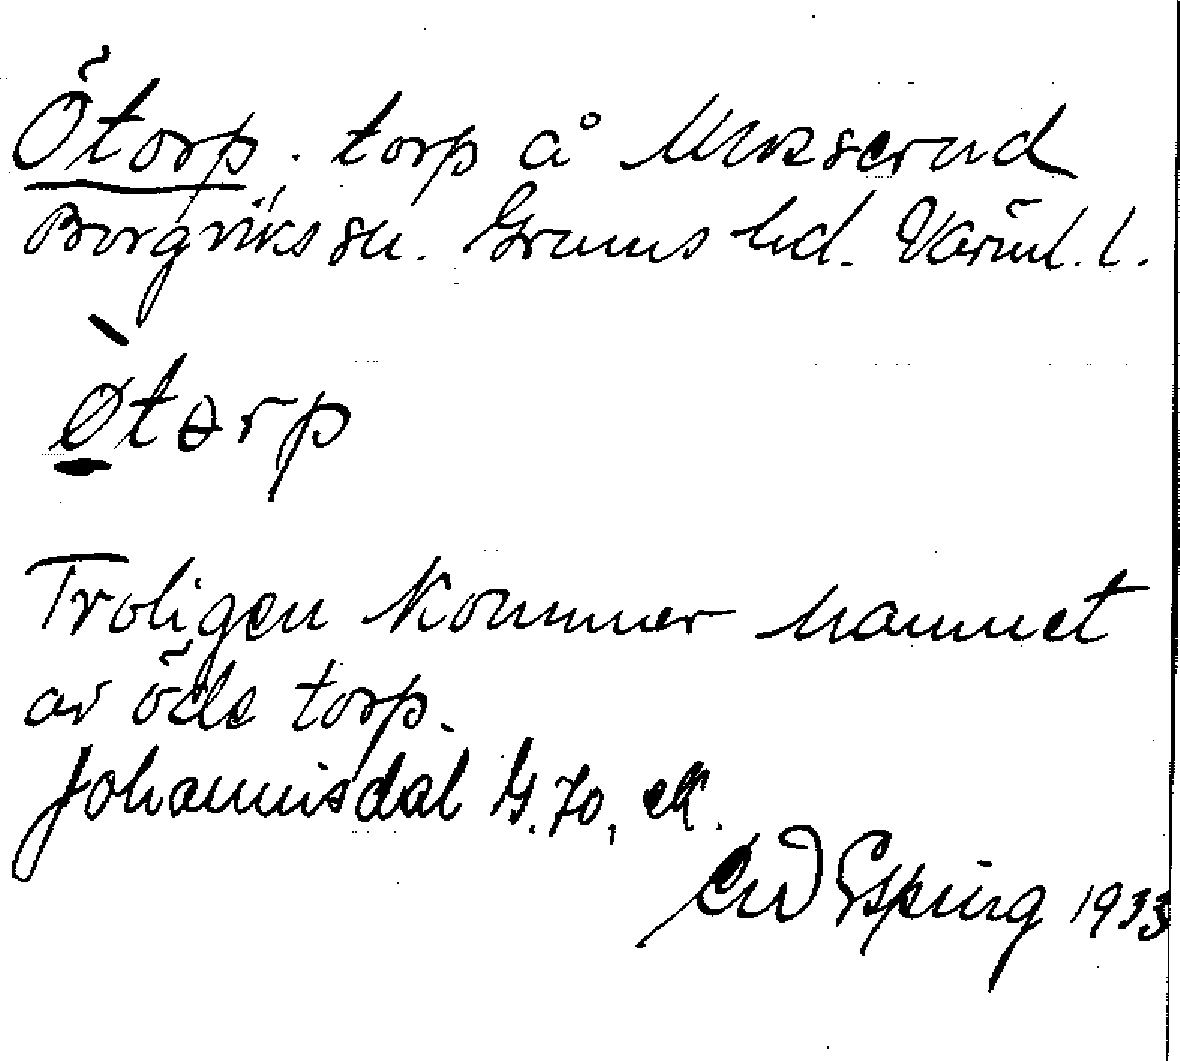 Ötorp. torp å
Borgviks sn. Grums hd. Värml. l.
Øtɵrp
Troligen kommer namnet
av öde torp.
Johannisdal G. 70, ek.
Esping 1933